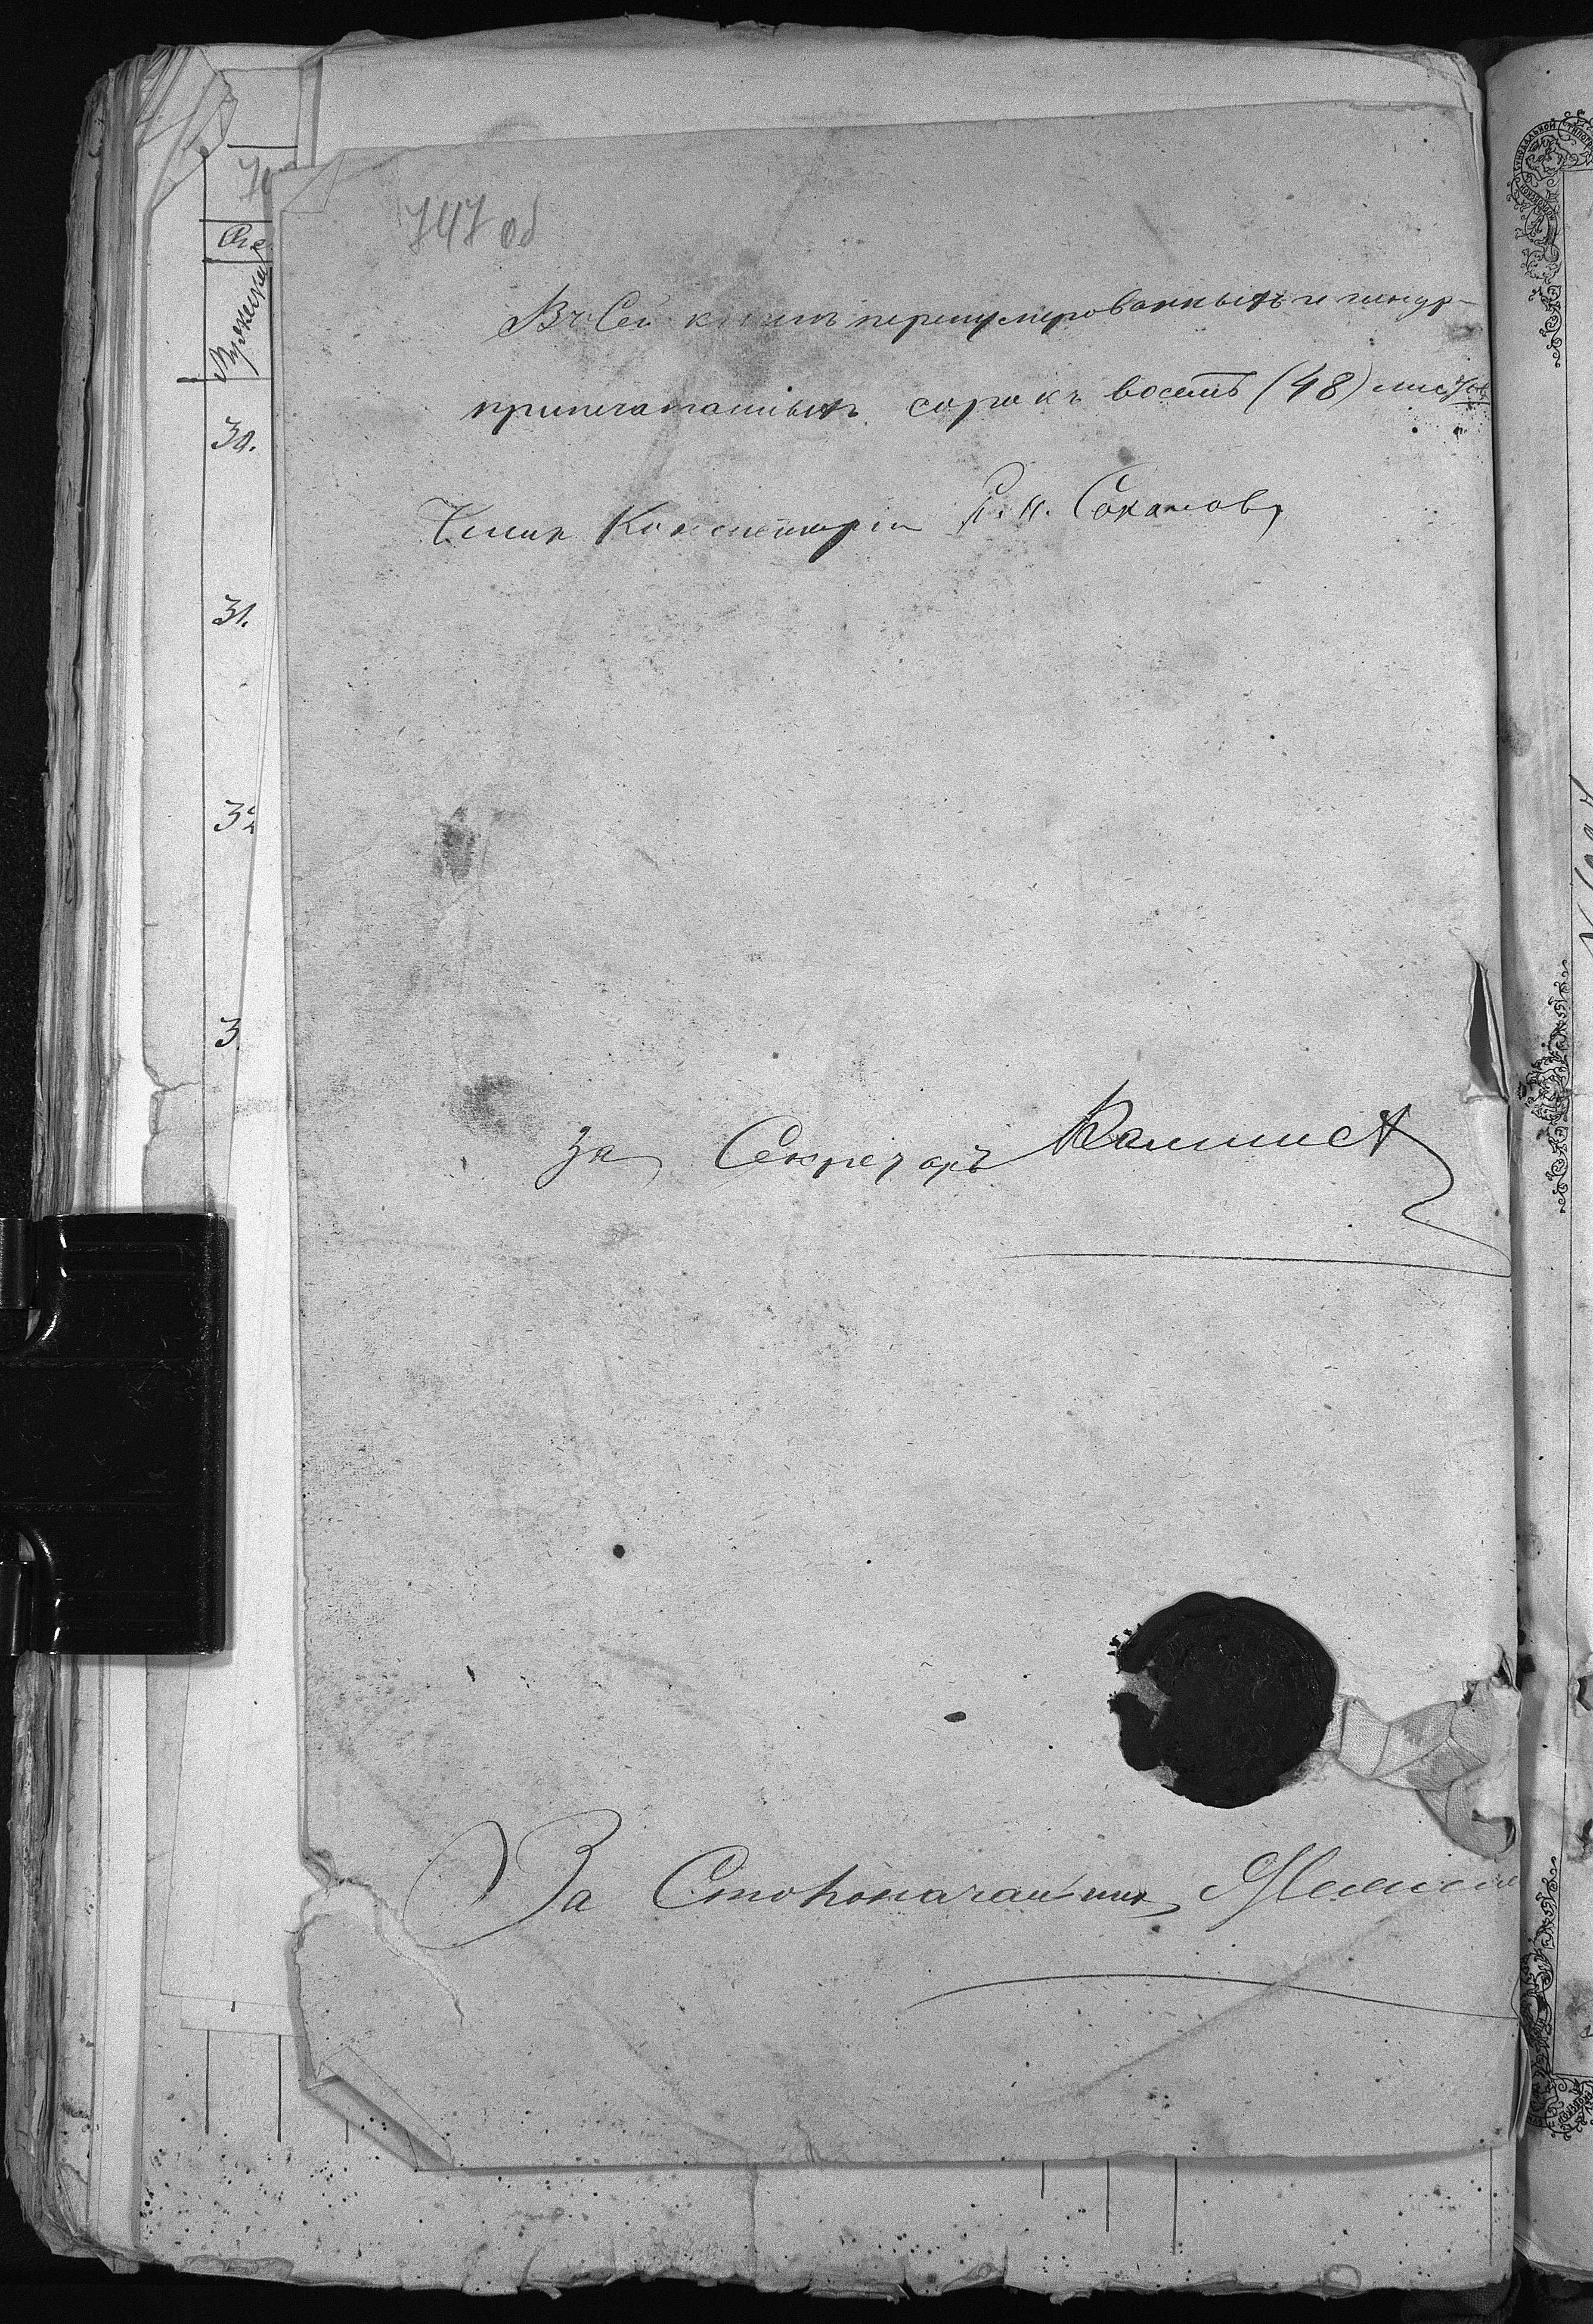 747 об
Въ Сей книгѣ перенумерованныхъ и шнур-
припечатанныхъ сорокъ восемь (48) листовъ
Членъ Консисторіи
За Секретарь
За Столоначальника
30.
31.
32
3